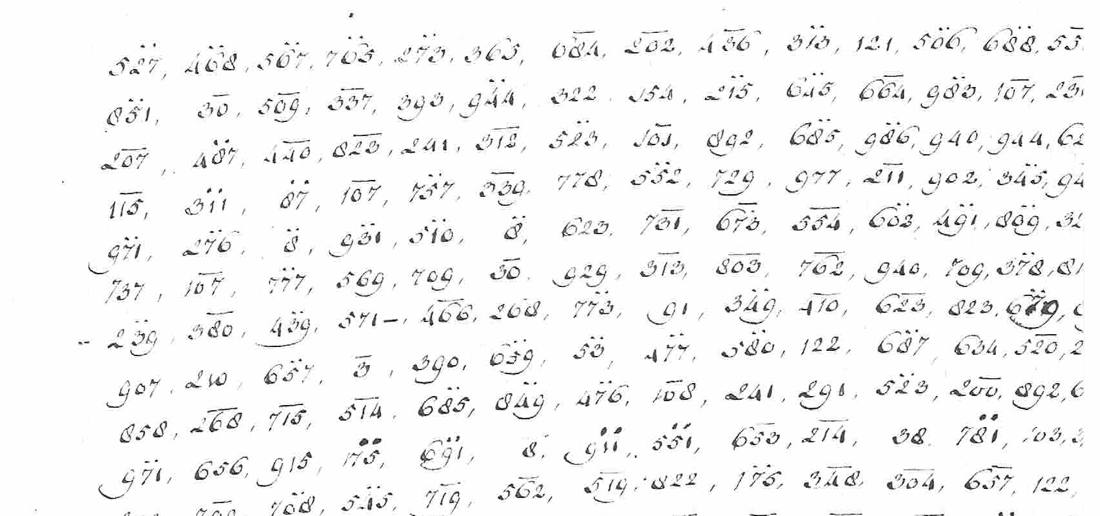 5̈27, 4̈68, 5̈67, 7̅65, 2̈73, 3̅65, 6̅84, 2̅02, 4̅36, 3̈13, 121, 5̈06, 6̈88, 55
8̈51, 3̅0, 5̅09, 3̅37, 393, 9̈44, 322, 154, 2̈15, 6̈45, 6̅64, 9̈83, 107, 23
2̅07, 4̈87, 4̅40, 8̅23, 241, 3̅12, 5̈23, 101, 892, 6̈85, 9̈86, 940, 944, 62
115, 3̈11, 8̈7, 1̅07, 7̈57, 3̅39, 778, 5̅52, 729, 977, 2̅11, 902, 3̈45, 94
9̈71, 2̈76, 8̈, 9̈31, 5̈10, 8̈, 623, 7̅31, 6̅73, 5̅54, 6̈02, 4̈91, 8̈09, 32
737, 1̅07, 7̈77, 569, 709, 3̅0, 929, 3̅13, 8̅03, 7̅62, 940, 709, 3̈78, 81
- 2̈39, 3̅80, 4̈39, 571-, 4̅66, 268, 7̈73, 91, 3̈49, 4̅10, 6̅23, 823, 6̈79,
907, 210, 6̈57, 3̅, 390, 6̈59, 5̈3, 4̈77, 5̈80, 122, 6̈87, 634, 5̈20, 2
858, 2̅68, 7̅15, 5̅14, 6̈85, 8̈49, 4̈76, 1̅08, 241, 291, 5̈23, 2̅00, 892, 6
9̈71, 656, 915, 1̈75, 6̈91, 8, 9̈11, 5̈51, 6̅53, 2̅14, 38, 7̈81, 103, 3
7̈68, 5̈45, 7̅19, 5̅62, 5̅19, 822, 1̈75, 3̅48, 3̅04, 6̅57, 122,